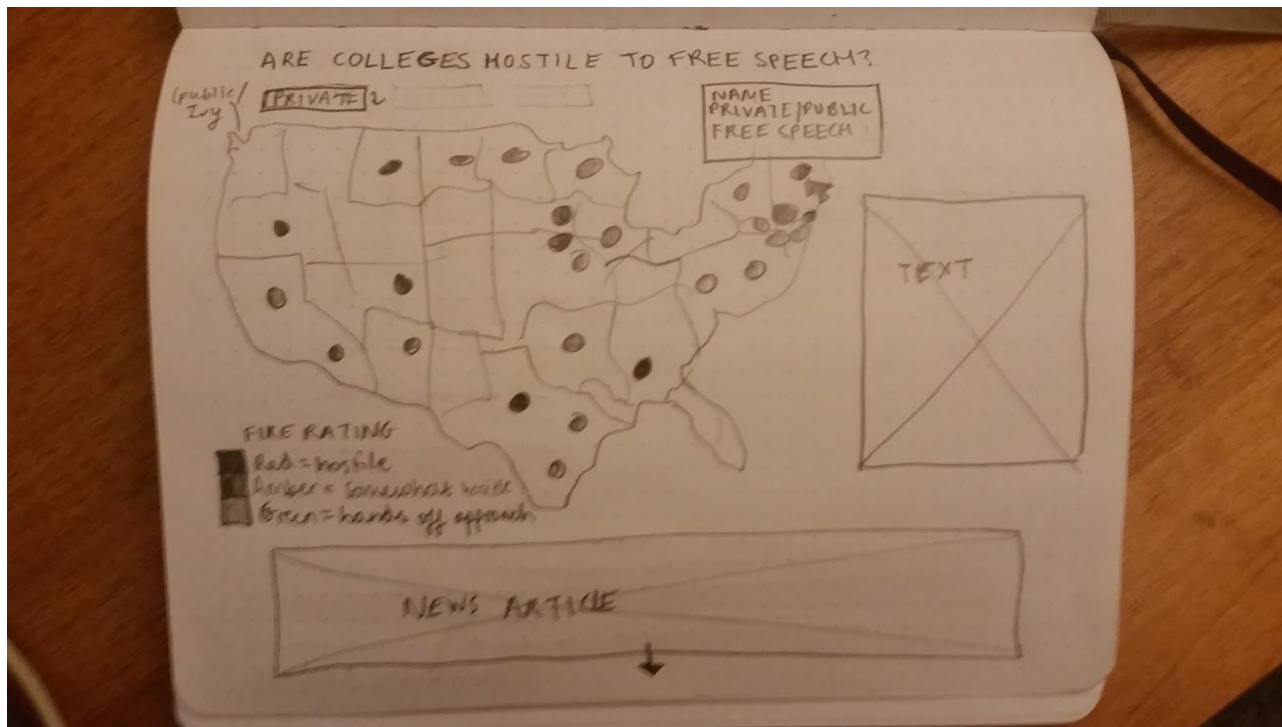 ARE COLLEGES HOSTILE TO FREE SPEECH?
(public/
Ivy)
PRIVATE
NAME
PRIVATE/PUBLIC
FREE SPEECH
TEXT
FIRE RATING
Red = hostile
Amber = somewhat
Green = hands off approach
NEWS ARTICLE